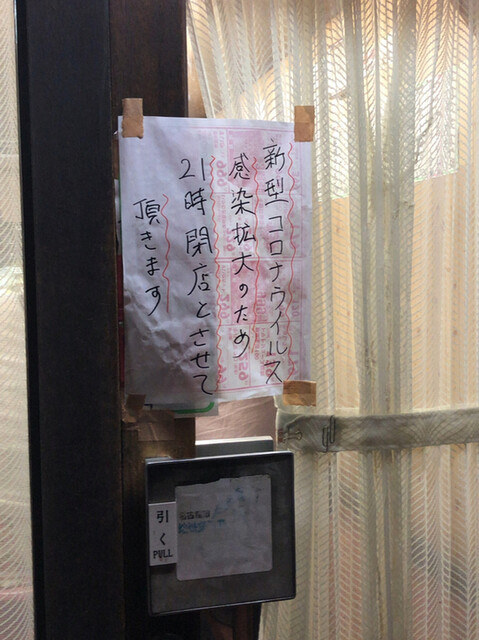 新型コロナウイルス
感染拡大のため
21時閉店とさせて
頂きます
引く
PULL